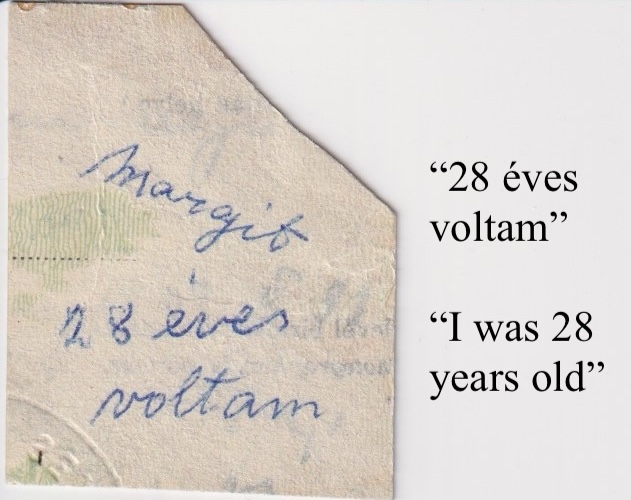 Margit
28 éves
voltam
“28 éves
voltam”
“I was 28
years old”